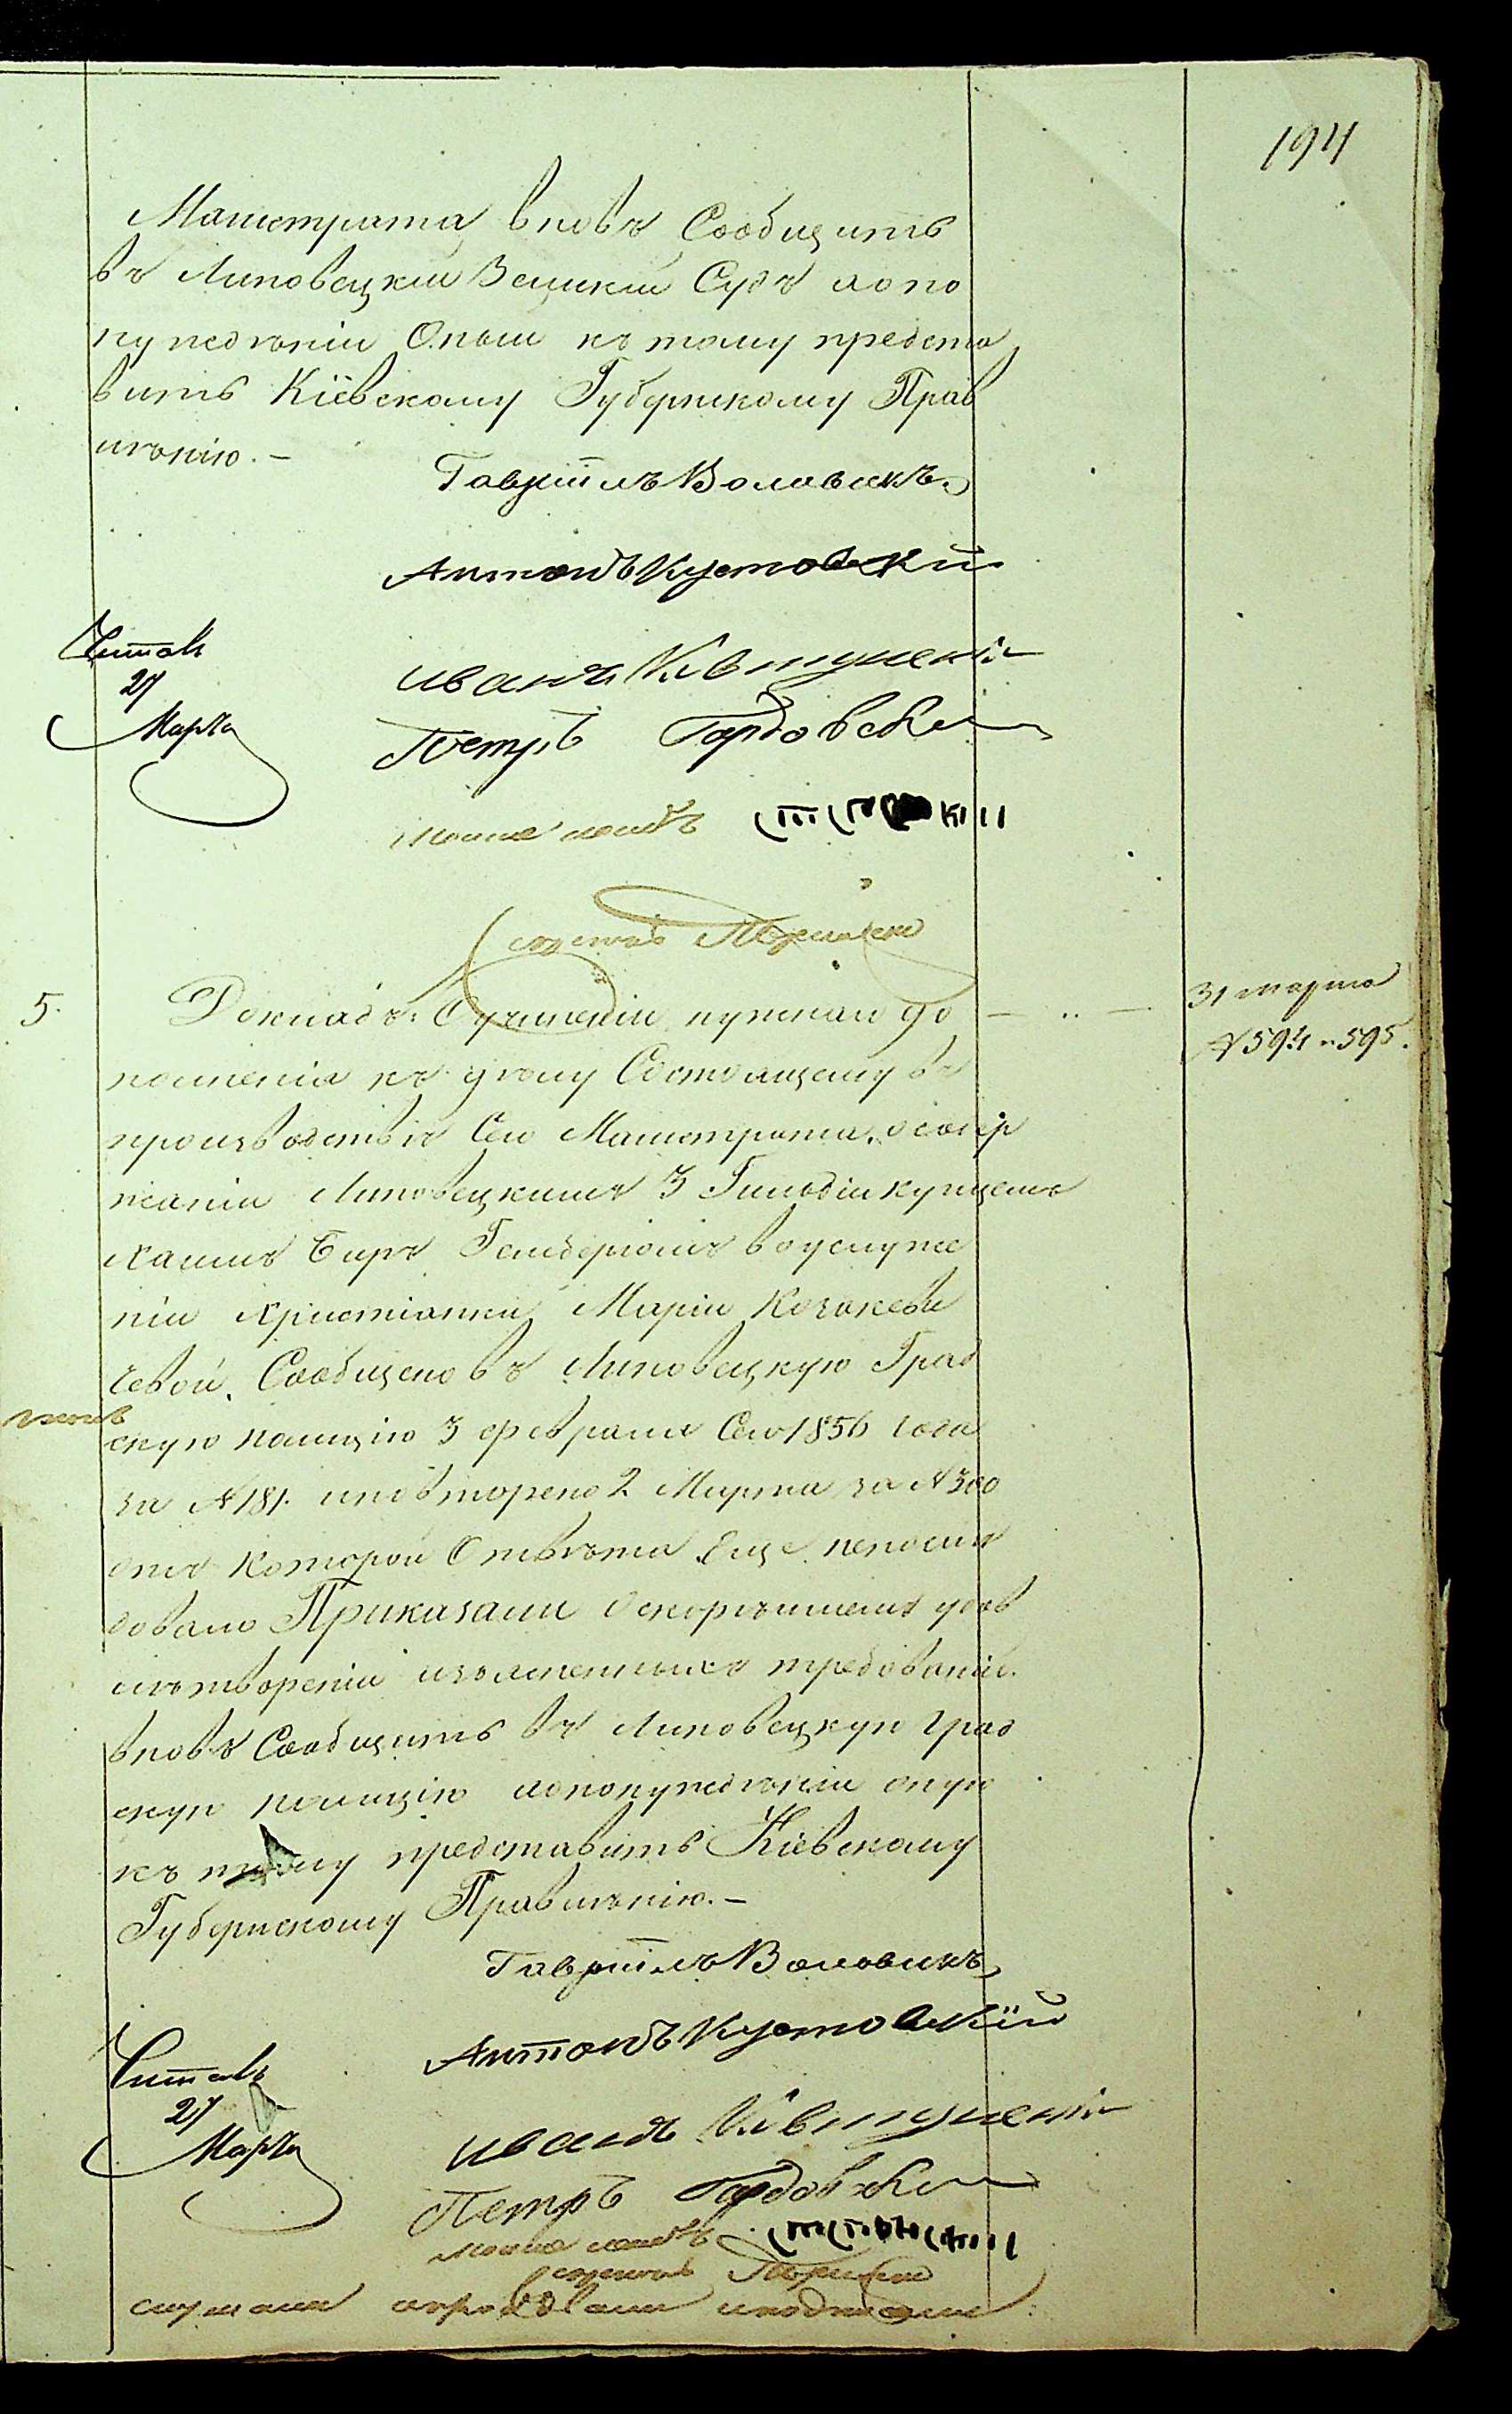 194
Магистрата, вновь Сообщить
въ Липовецкій Земскій Судъ а о по
нужденіи Оныи къ тому предста
вить Кіевскому Губернскому Прав
ленію. –
Гавріилъ Воловикъ
Антонъ Кустовскій
Читалъ
27
Марта
Иванъ
Петръ Гордовскі
5.
Докладъ: О учиненіи нужнаго до
полненія къ дѣлу Состоящему въ
производствѣ Сего Магистрата, о содер
жаніи Липовецкимъ 3 Гильдіи купцемъ
Хаимъ Беръ въ услуже
ніи Христіанки Маріи Козакеви
чевой, Сообщено въ Липовецкую Град
скую полицію 3 февраля Сего 1856 года
за № 181. и повторено 2 Марта за № 300
отъ которой Отвѣта Еще непослѣ
довало Приказали о скорѣйшемъ удов
лѣтвореніи изъясненныхъ требованій
вновь Сообщить въ Липовецкую град
скую полицію а о понужденіи оную
къ тому представить Кіевскому
Губернскому Правленію. –
31 марта
№ 594 и 595.
Гавріилъ Воловикъ
Антонъ Кустовскій
Читалъ
27
Марта
Иванъ
Петръ Гордовскі